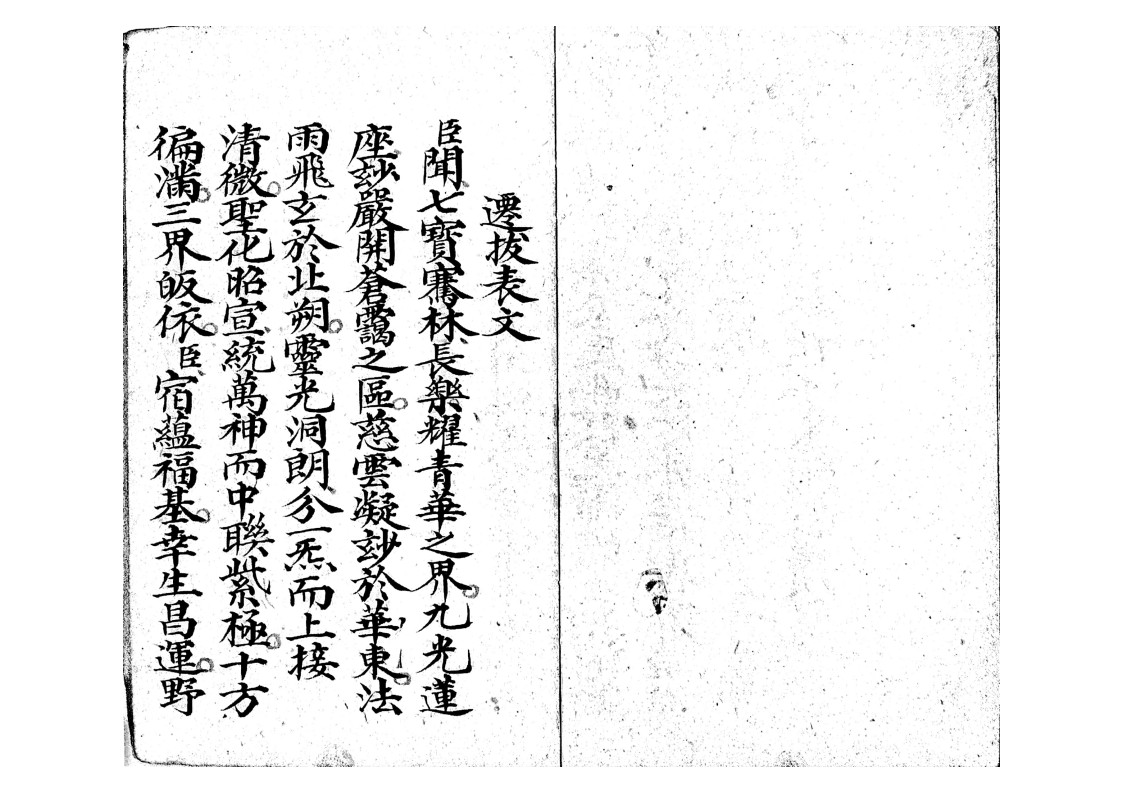 遷拔表文
臣聞七寶騫林長樂耀青華之界九光蓮
座玅嚴開蒼靄之區慈雲凝玅於華東法
雨飛玄於北朔靈光洞朗分一炁而上接
清微聖化昭宣統萬神而中聮紫極十方
徧滿三界皈依臣宿蘊福基幸生昌運野